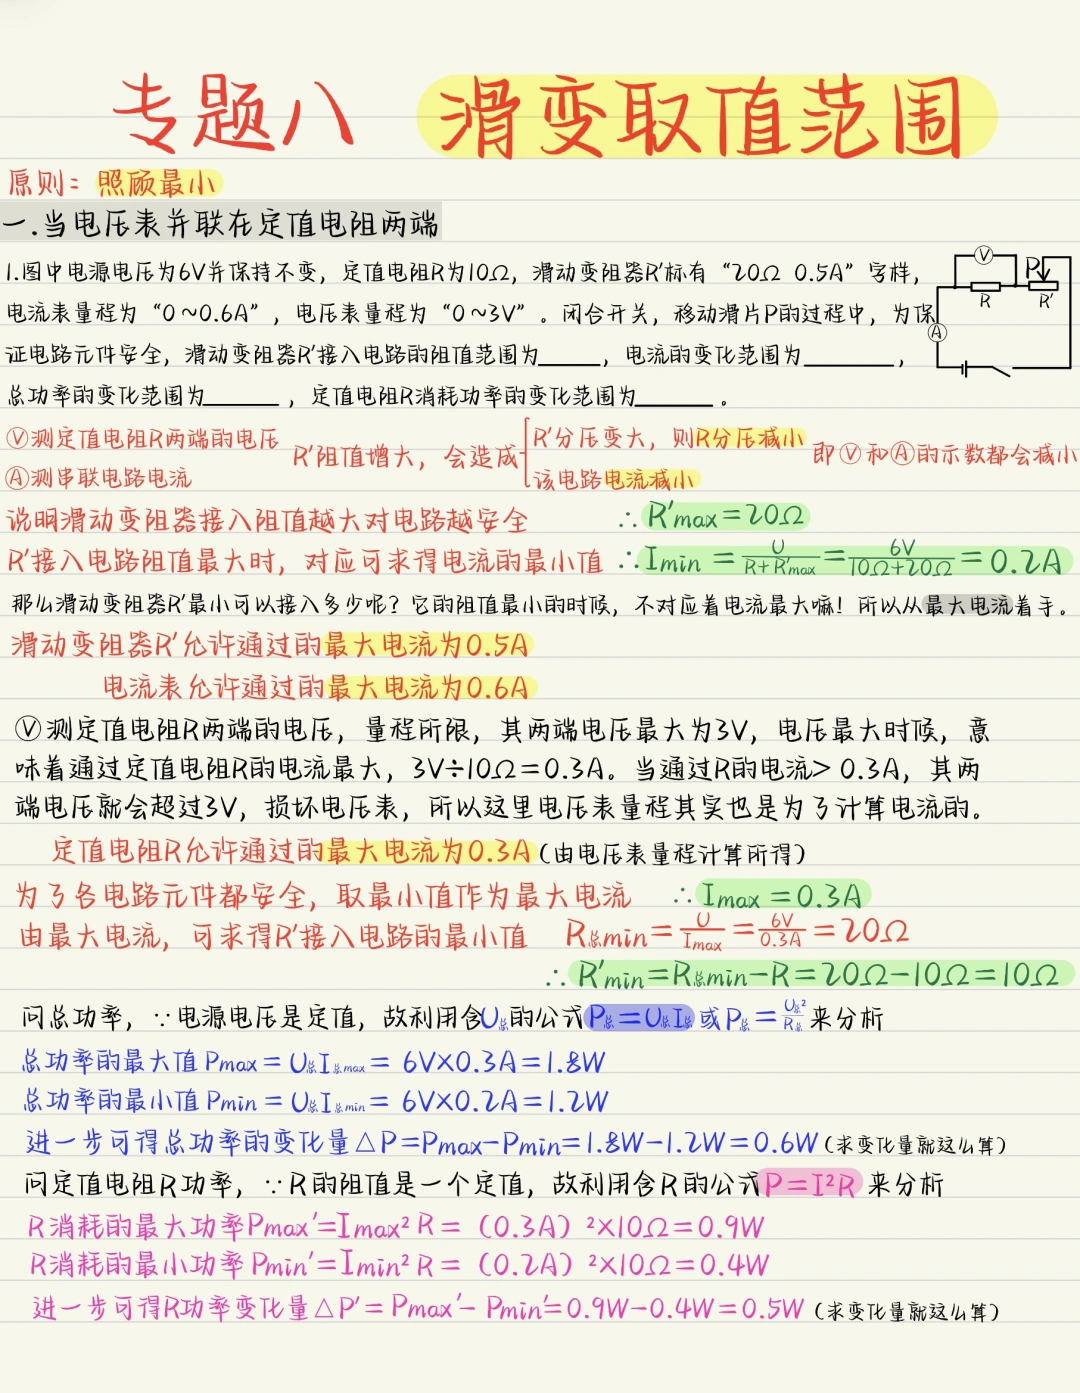 专题八 滑变取值范围
原则：照顾最小
一.当电压表并联在定值电阻两端
1.图中电源电压为6V并保持不变，定值电阻R为10Ω，滑动变阻器R′标有“20Ω 0.5A”字样，
电流表量程为“0~0.6A”，电压表量程为“0~3V”。闭合开关，移动滑片P的过程中，为保
证电路元件安全，滑动变阻器R′接入电路的阻值范围为_____，电流的变化范围为_______，
总功率的变化范围为______，定值电阻R消耗功率的变化范围为______。
V
P
R
R′
A
Ⓥ测定值电阻R两端的电压
Ⓐ测串联电路电流
R′阻值增大，会造成
R′分压变大，则R分压减小
该电路电流减小
即Ⓥ和Ⓐ的示数都会减小
说明滑动变阻器接入阻值越大对电路越安全 ∴R′max=20Ω
R′接入电路阻值最大时，对应可求得电流的最小值 ∴Imin=U/(R+R′max)=6V/(10Ω+20Ω)=0.2A
那么滑动变阻器R′最小可以接入多少呢？它的阻值最小的时候，不对应着电流最大嘛！所以从最大电流着手。
滑动变阻器R′允许通过的最大电流为0.5A
电流表允许通过的最大电流为0.6A
Ⓥ测定值电阻R两端的电压，量程所限，其两端电压最大为3V，电压最大时候，意
味着通过定值电阻R的电流最大，3V÷10Ω=0.3A。当通过R的电流>0.3A，其两
端电压就会超过3V，损坏电压表，所以这里电压表量程其实也是为了计算电流的。
定值电阻R允许通过的最大电流为0.3A(由电压表量程计算所得)
为了各电路元件都安全，取最小值作为最大电流 ∴Imax=0.3A
由最大电流，可求得R′接入电路的最小值 R总min=U/Imax=6V/0.3A=20Ω
∴R′min=R总min-R=20Ω-10Ω=10Ω
问总功率，∵电源电压是定值，故利用含U总的公式P总=U总I总或P总=U总²/R总来分析
总功率的最大值Pmax=U总I总max=6V×0.3A=1.8W
总功率的最小值Pmin=U总I总min=6V×0.2A=1.2W
进一步可得总功率的变化量△P=Pmax-Pmin=1.8W-1.2W=0.6W(求变化量就这么算)
问定值电阻R功率，∵R的阻值是一个定值，故利用含R的公式P=I²R来分析
R消耗的最大功率Pmax′=Imax²R=（0.3A）²×10Ω=0.9W
R消耗的最小功率Pmin′=Imin²R=（0.2A）²×10Ω=0.4W
进一步可得R功率变化量△P′=Pmax′-Pmin′=0.9W-0.4W=0.5W(求变化量就这么算)